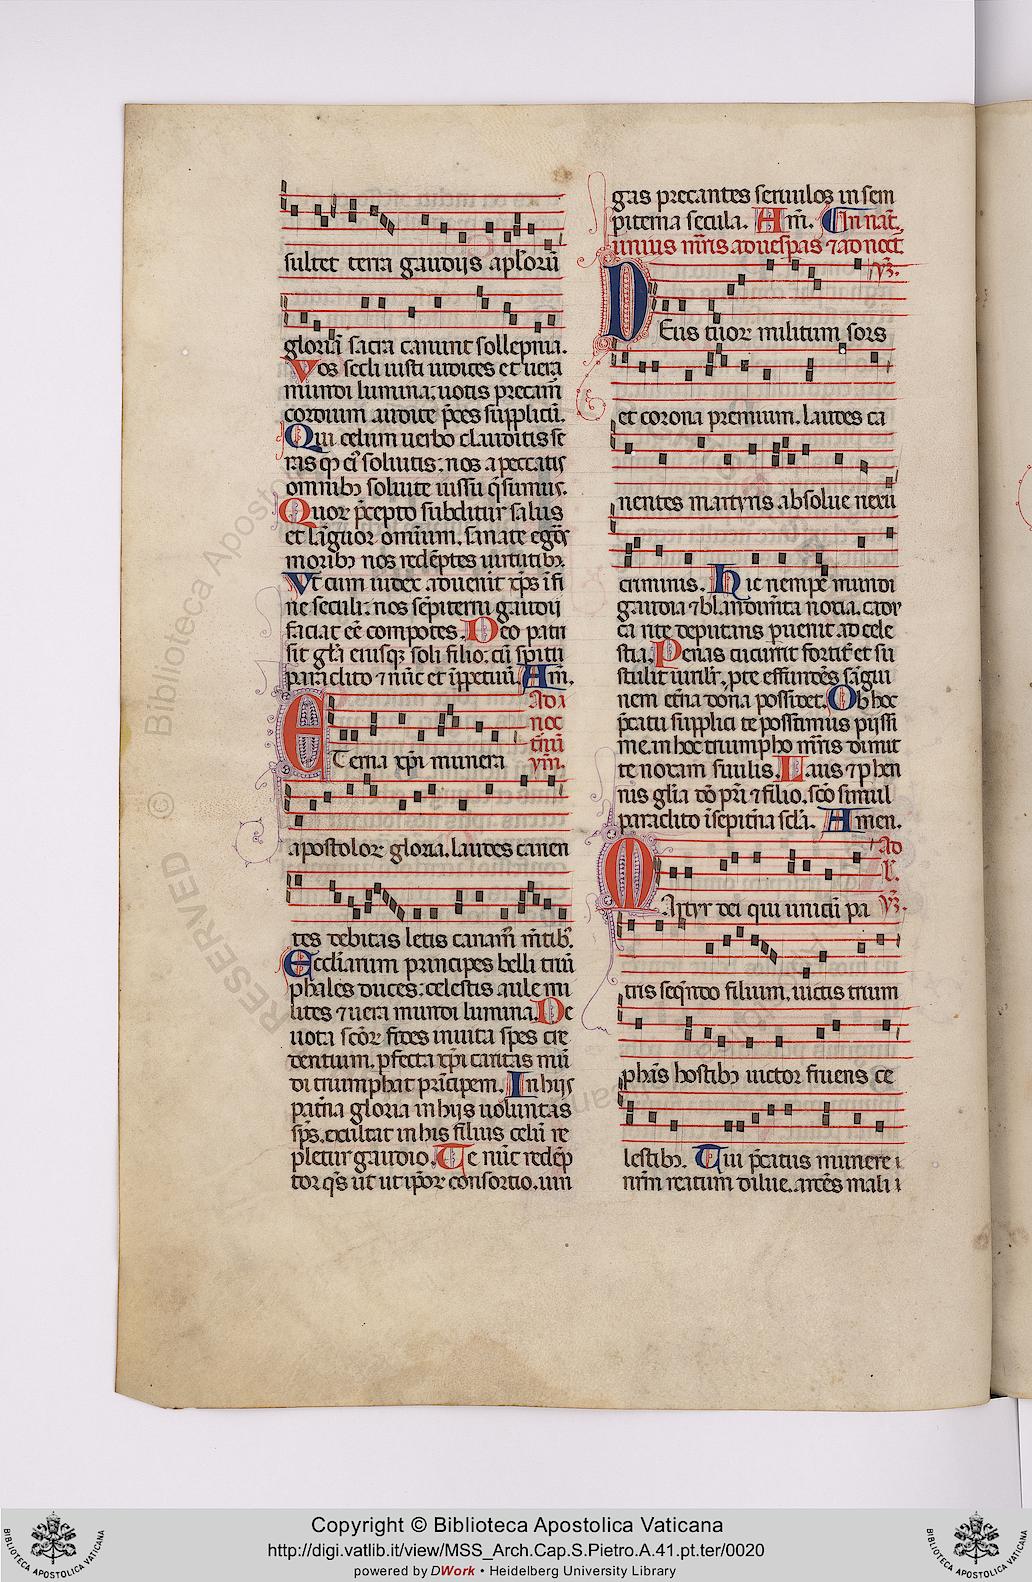 sultet terra gaudijs aplorū
gloriā sacra canunt sollepnia.
Vos secli iusti iudices et uera
mundi lumina: uotis precam̄
cordium audite p̄ces supplicū.
Qui celum uerbo clauditis se
ras qȝ eiꝰ soluitis: nos a peccatis
omnibȝ soluite iussu q̄sumus.
Quor p̄cepto subditur salus
et lāguor omnium. sanate egros
moribȝ nos reddentes uirtutibȝ.
Vt cum iudex aduenit xp̄s ī fi
ne seculi: nos sēpiterni gaudij
faciat eē compotes. Deo patri
sit gl̄a eiusqȝ soli filio: cū spiritu
paraclito ⁊ nūc et ī ppetuū. Am.
Ad a
noc
turnū
ym̄.
Eterna xp̄i munera
apostoloꝝ gloria. laudes canen
tes debitas letis canam̄ mentibȝ.
Eccliarum principes belli triū
phales duces: celestis aule mi
lites ⁊ uera mundi lumina. De
uota scōꝝ fides inuita spes cre
dentium. pfecta xp̄i caritas mū
di triumphat prīcipem. In hijs
pat̄na gloria in hijs uoluntas
sp̄s. exultat in his filius celū re
pletur gaudio. Te nūc redēp
tor q̄s ut ut ip̄oꝝ consortio. iun
gas precantes seruulos in sem
piterna secula. Am̄. In nat̄.
unius mr̄is ad uesp̄as ⁊ ad noct̄.
ym̄.
Deus tuoꝝ militum sors
et corona premium. laudes ca
nentes martyris absolue nexū
criminis. Hic nempe mundi
gaudia ⁊ blandimēta noxia. cadu
ca rite deputans puenit ad cele
stia. Penas cucurrit fortit̄ et su
stulit uirilr̄. p te effundēs sāgui
nem etn̄a dona possidet. Ob hoc
p̄catu supplici te possimus pijssi
me. in hoc triumpho mr̄is dimit
te noxam seruulis. Laus ⁊ phen
nis gl̄ia dō pr̄i ⁊ filio. scō simul
paraclito ī sepit̄na scl̄a. Amen.
Ad
l̄.
ym̄.
Martyr dei qui unicū pa
tris seq̄ndo filium. uictis trium
phās hostibȝ uictor fruens ce
lestibȝ. Tui p̄catus munere
nr̄m reatum dilue. arcēs mali
RESERVED © Biblioteca Apostolica
Copyright © Biblioteca Apostolica Vaticana
http://digi.vatlib.it/view/MSS_Arch.Cap.S.Pietro.A.41.pt.ter/0020
powered by DWork • Heidelberg University Library
BIBLIOTECA APOSTOLICA VATICANA
BIBLIOTECA APOSTOLICA VATICANA